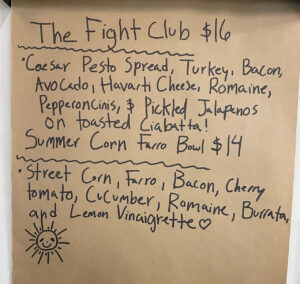 The Fight Club $16
•Caesar Pesto Spread, Turkey, Bacon,
Avocado, Havarti Cheese, Romaine,
Pepperoncinis, & Pickled Jalapenos
on toasted Ciabatta!
Summer Corn Farro Bowl $14
•Street Corn, Farro, Bacon, Cherry
tomato, Cucumber, Romaine, Burrata,
and Lemon Vinaigrette♡